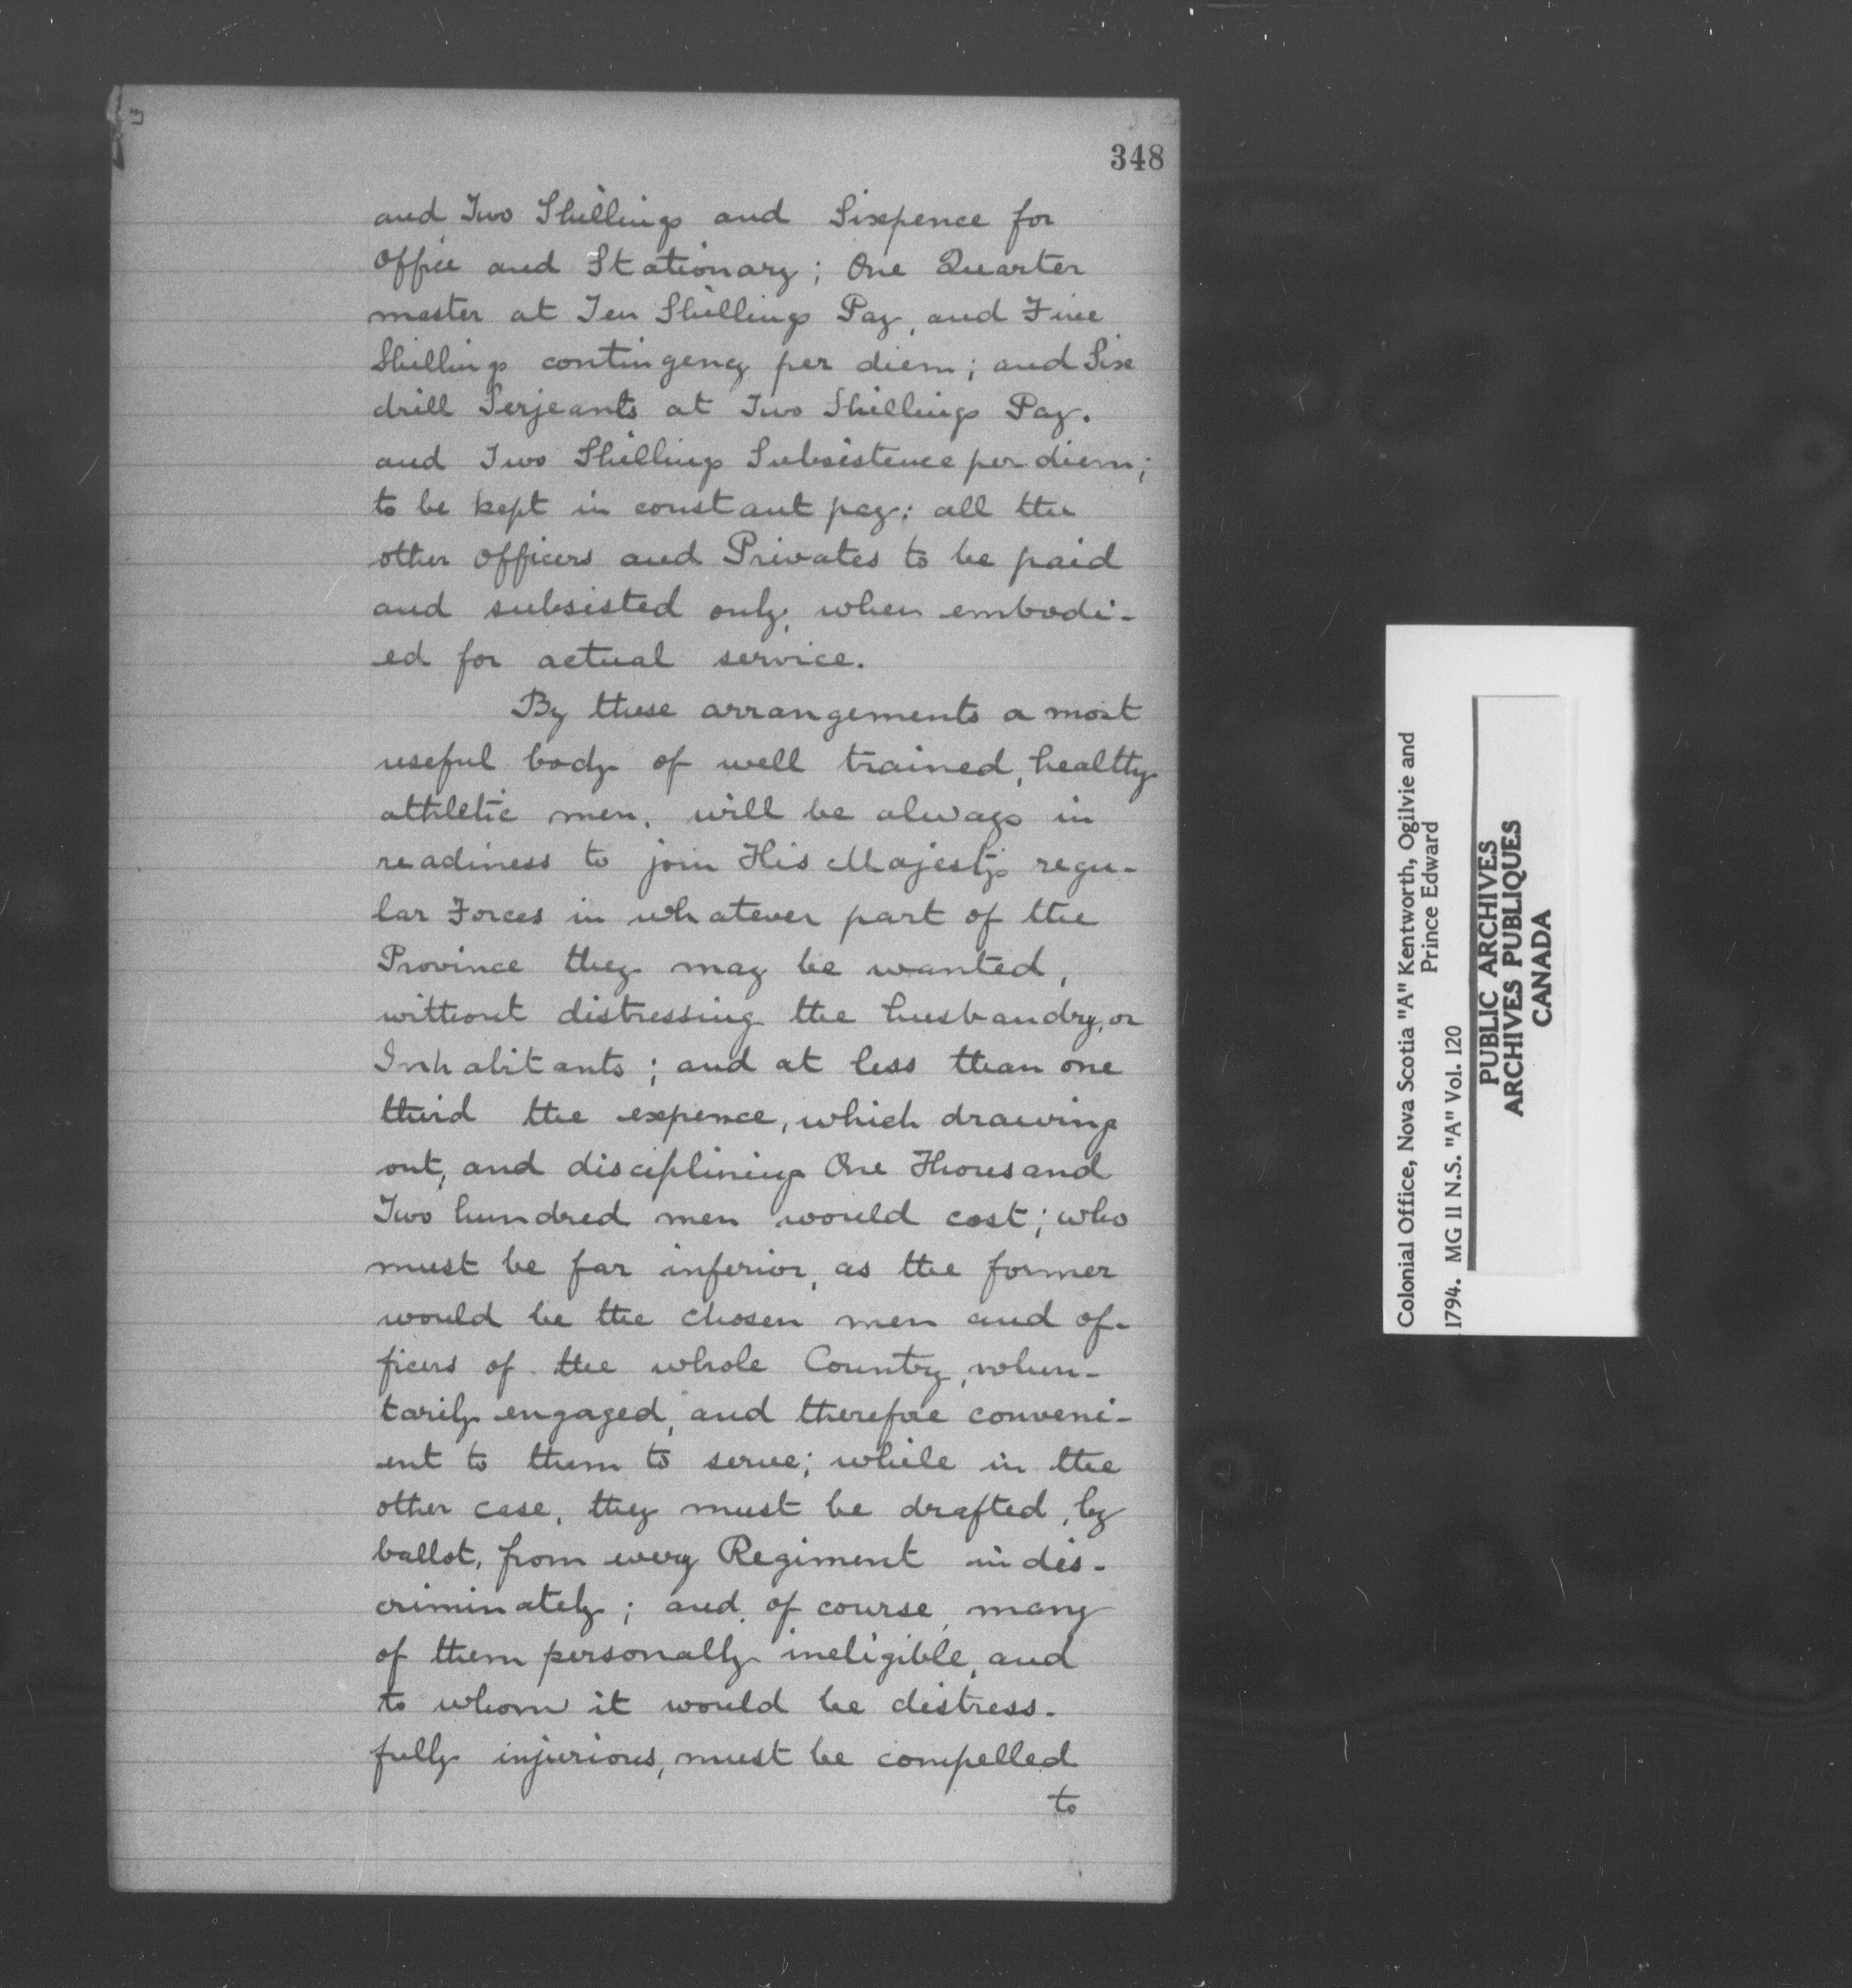 348
and Two Shillings and Sixpence for
Office and Stationary; One Quarter
master at Ten Shillings Pay, and Five
Shillings contingency per diem; and Six
drill Serjeants at Two Shillings Pay.
and Two Shillings Subsistence per diem;
to be kept in constant pay: all the
other officers and Privates to be paid
and subsisted only, when embodi-
ed for actual service.
By these arrangements a most
useful body of well trained, healthy
athletic men, will be always in
readiness to join His Majesty's regu-
lar Forces in whatever part of the
Province they may be wanted,
without distressing the husbandry, or
Inhabitants; and at less than one
third the expence, which drawing
out, and disciplining One Thousand
Two hundred men would cost; who
must be far inferior, as the former
would be the chosen men and of-
ficers of the whole Country, volun-
tarily engaged, and therefore conveni-
ent to them to serve; while in the
other case, they must be drafted, by
ballot, from every Regiment indis-
criminately; and, of course, many
of them personally ineligible, and
to whom it would be distress-
fully injurious, must be compelled
to
Colonial Office, Nova Scotia "A" Kentworth, Ogilvie and
Prince Edward
1794. MG 11 N.S. "A" Vol. 120
PUBLIC ARCHIVES
ARCHIVES PUBLIQUES
CANADA